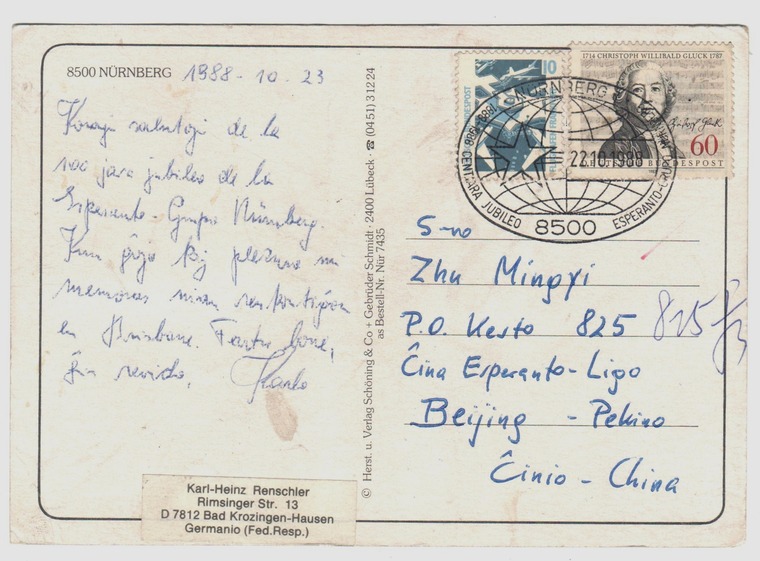 8500 NÜRNBERG 1988-10-23
Korajn salutojn de la
100 jara jubileo de la
Esperanto-Grupo Nürnberg.
Kun ĝojo kaj plezuro mi
memoras nian renkontiĝon
en Brisbane. Fartu bone,
ĝis revido,
Karl-Heinz Renschler
Rimsinger Str. 13
D 7812 Bad Krozingen-Hausen
Germanio (Fed.Resp.)
© Herst. u. Verlag Schöning & Co + Gebrüder Schmidt · 2400 Lübeck · ☎ (0451) 31224
as Bestell-Nr. Nür 7435
10
1714 CHRISTOPH WILLIBALD GLUCK 1787
60
DEUTSCHE BUNDESPOST
NÜRNBERG
1888-1988 CENTJARA JUBILEO
22.10.1988
8500
ESPERANTO-GRUPO
S-no
Zhu Mingyi
P.O. Kesto 825 825
Ĉina Esperanto-Ligo
Beijing - Pekino
Ĉinio - China